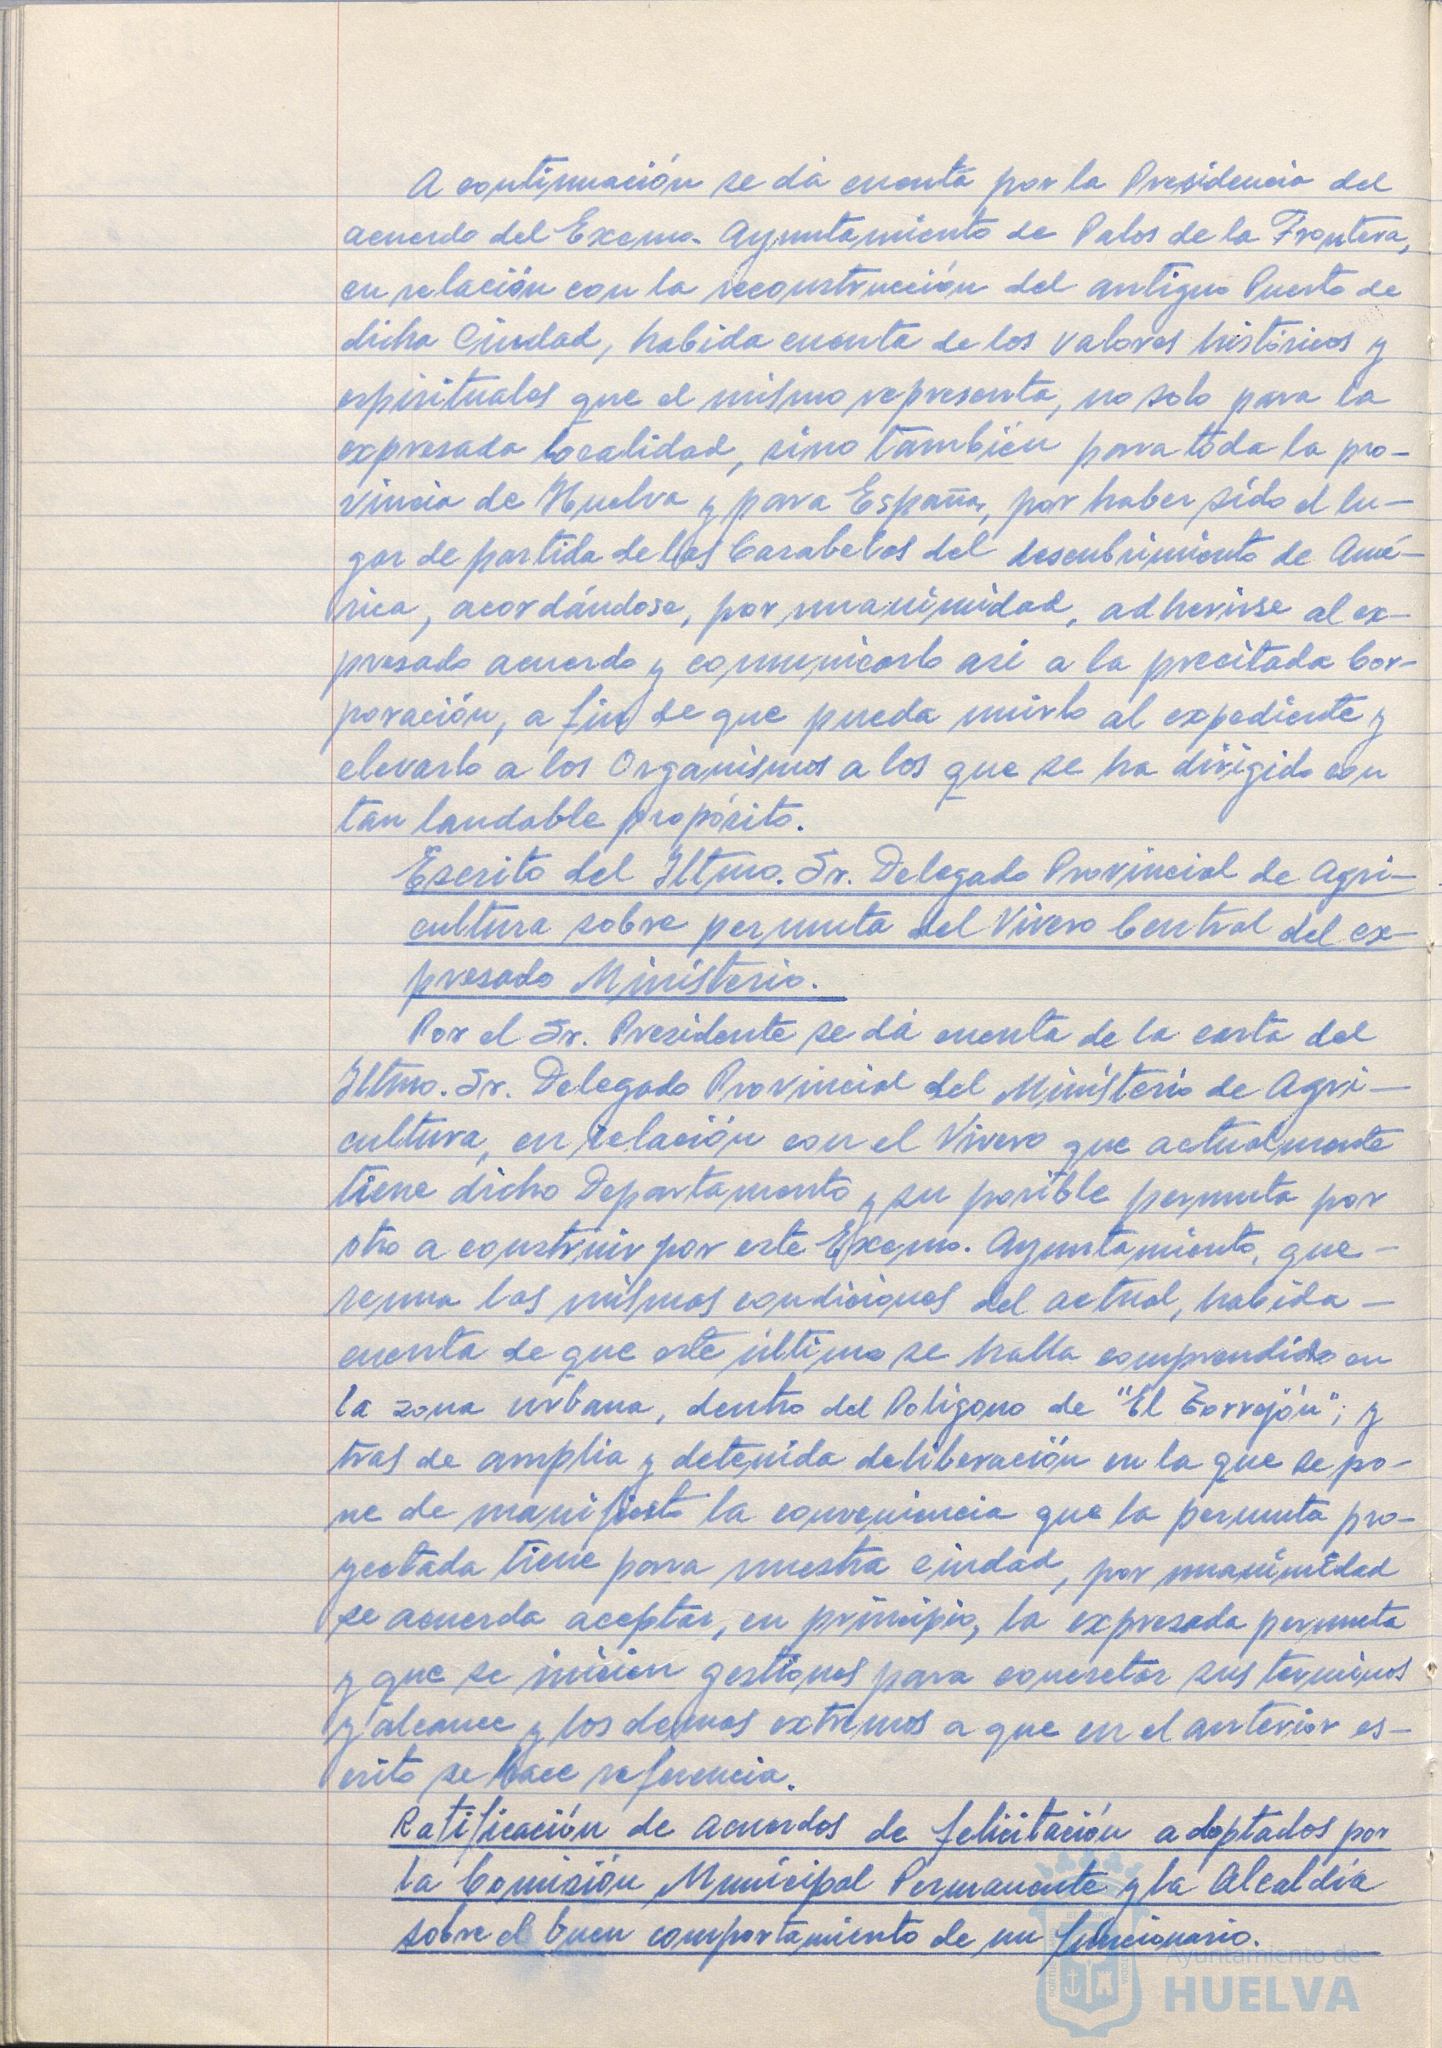 A continuación se dá cuenta por la Presidencia del
acuerdo del Excmo. Ayuntamiento de Palos de la Frontera,
en relación con la reconstrucción del antiguo Puerto de
dicha Ciudad, habida cuenta de los valores históricos y
espirituales que el mismo representa, no solo para la
expresada localidad, sino también para toda la pro-
vincia de Huelva y para España, por haber sido el lu-
gar de partida de las Carabelas del descubrimiento de Amé-
rica, acordándose, por unanimidad, adherirse al ex-
presado acuerdo y comunicarlo asi a la precitada Cor-
poración, a fin de que pueda unirlo al expediente y
elevarlo a los Organismos a los que se ha dirigido con
tan laudable propósito.
Escrito del Iltmo. Sr. Delegado Provincial de Agri-
cultura sobre permuta del Vivero Central del ex-
presado Ministerio.
Por el Sr. Presidente se dá cuenta de la carta del
Iltmo. Sr. Delegado Provincial del Ministerio de Agri-
cultura, en relación con el Vivero que actualmente
tiene dicho Departamento y su posible permuta por
otro a construir por este Excmo. Ayuntamiento, que-
reuna las mismas condiciones del actual, habida-
cuenta de que este último se halla comprendido en
la zona urbana, dentro del Polígono de "El Torrejón"; y
tras de amplia y detenida deliberación en la que se po-
ne de manifiesto la conveniencia que la permuta pro-
yectada tiene para nuestra ciudad, por unanimidad
se acuerda aceptar, en principio, la expresada permuta
y que se inicien gestiones para concretar sus terminos
y alcance y los demas extremos a que en el anterior es-
crito se hace referencia.
Ratificación de acuerdos de felicitación adoptados por
la Comisión Municipal Permanente y la Alcaldía
sobre el buen comportamiento de un funcionario.
Ayuntamiento de
HUELVA